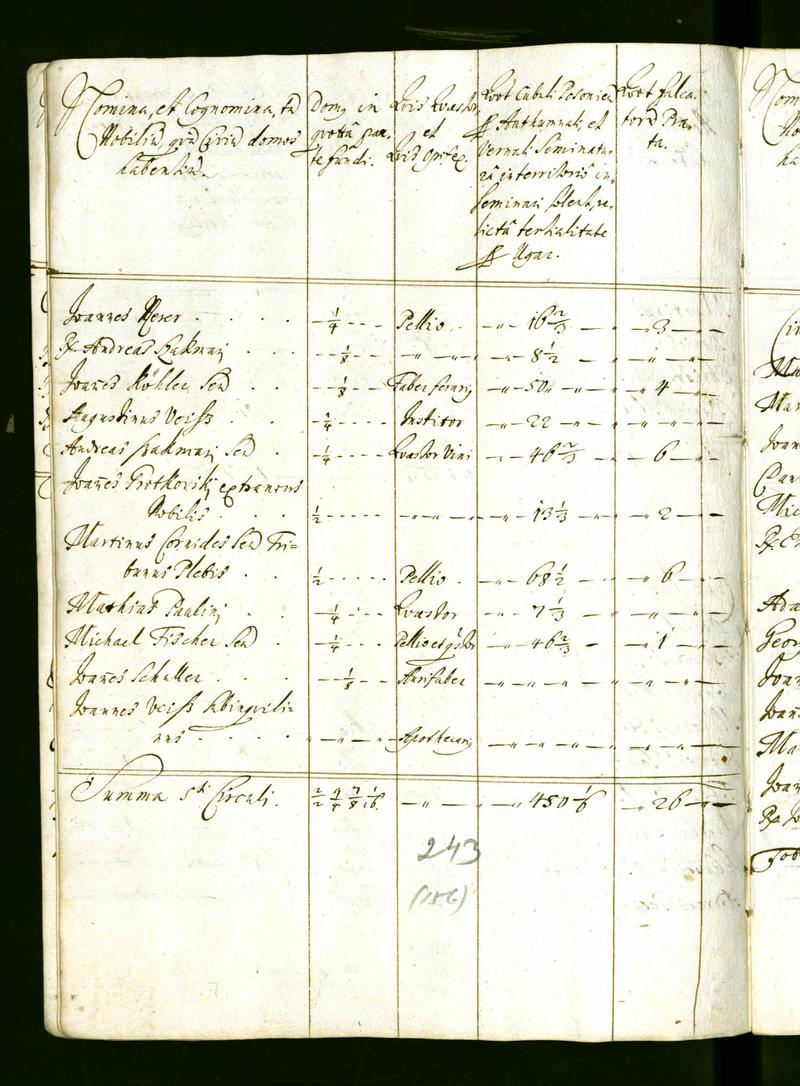 Nomina, et Cognomina, tā
Nobiliū, quā Civiū domos
habentiū.
Domꝰ in
quotâ par,
te fundi.
Kvis Kvæstor
et
Kvis Opifex.
Kvot Cubuli Posonien
Authumnali, et
Vernali Seminatu,
râ in territoriô in,
seminari solent, re,
lictâ tertialitate
Ugar.
Kvot falca,
torū Pra,
ta.
Joannes - - - - ¼ - - - Pellio - „ - 16 ⅔ - „ - „ 3 - „ -
Andreas Hakmaj - - - ⅛ - - - „ - „ - 8 ½ - „ - „ - „
Joañes Köhler Seū - - ⅛ - - Faber ferariꝰ - „ - 50 „ - „ - „ 4 - „ -
Augustinus Veiss - - ¼ - - - Institor - „ - 22 - „ - „ - „
Andreas Hakmaj Seū - ¼ - - - Kvæstor Vini - „ - 46 ⅔ - „ 6 - „
Joañes Protkovskj extraneus
Nobilis - - - ½ - - - - „ - „ - 13 ⅓ - „ - „ 2 - „
Martinus Cornides Seū Tri=
bunus Plebis - - ½ - - - - Pellio - „ - 68 ½ - „ - „ 6 - „
Mathias Paulinj - - ¼ - - - Kvæstor - „ - 7 ⅓ - „ - „ - „
Michael Fischer Seū - ¼ - - - Pellio et - „ - 46 ⅔ - „ 1 - „
Joañes Schuller - - - ⅛ - - - Aurifaber - „ - „ - „ - „ - „
Joannes Veiss
nus - - - - „ - „ - Apothecariꝰ - „ - „ - „ - „
Summa 5ti Circuli. 2/2 9/4 7/8 1/16 - „ - „ - 480 ⅙ - „ 26 - „ -
243
(186)